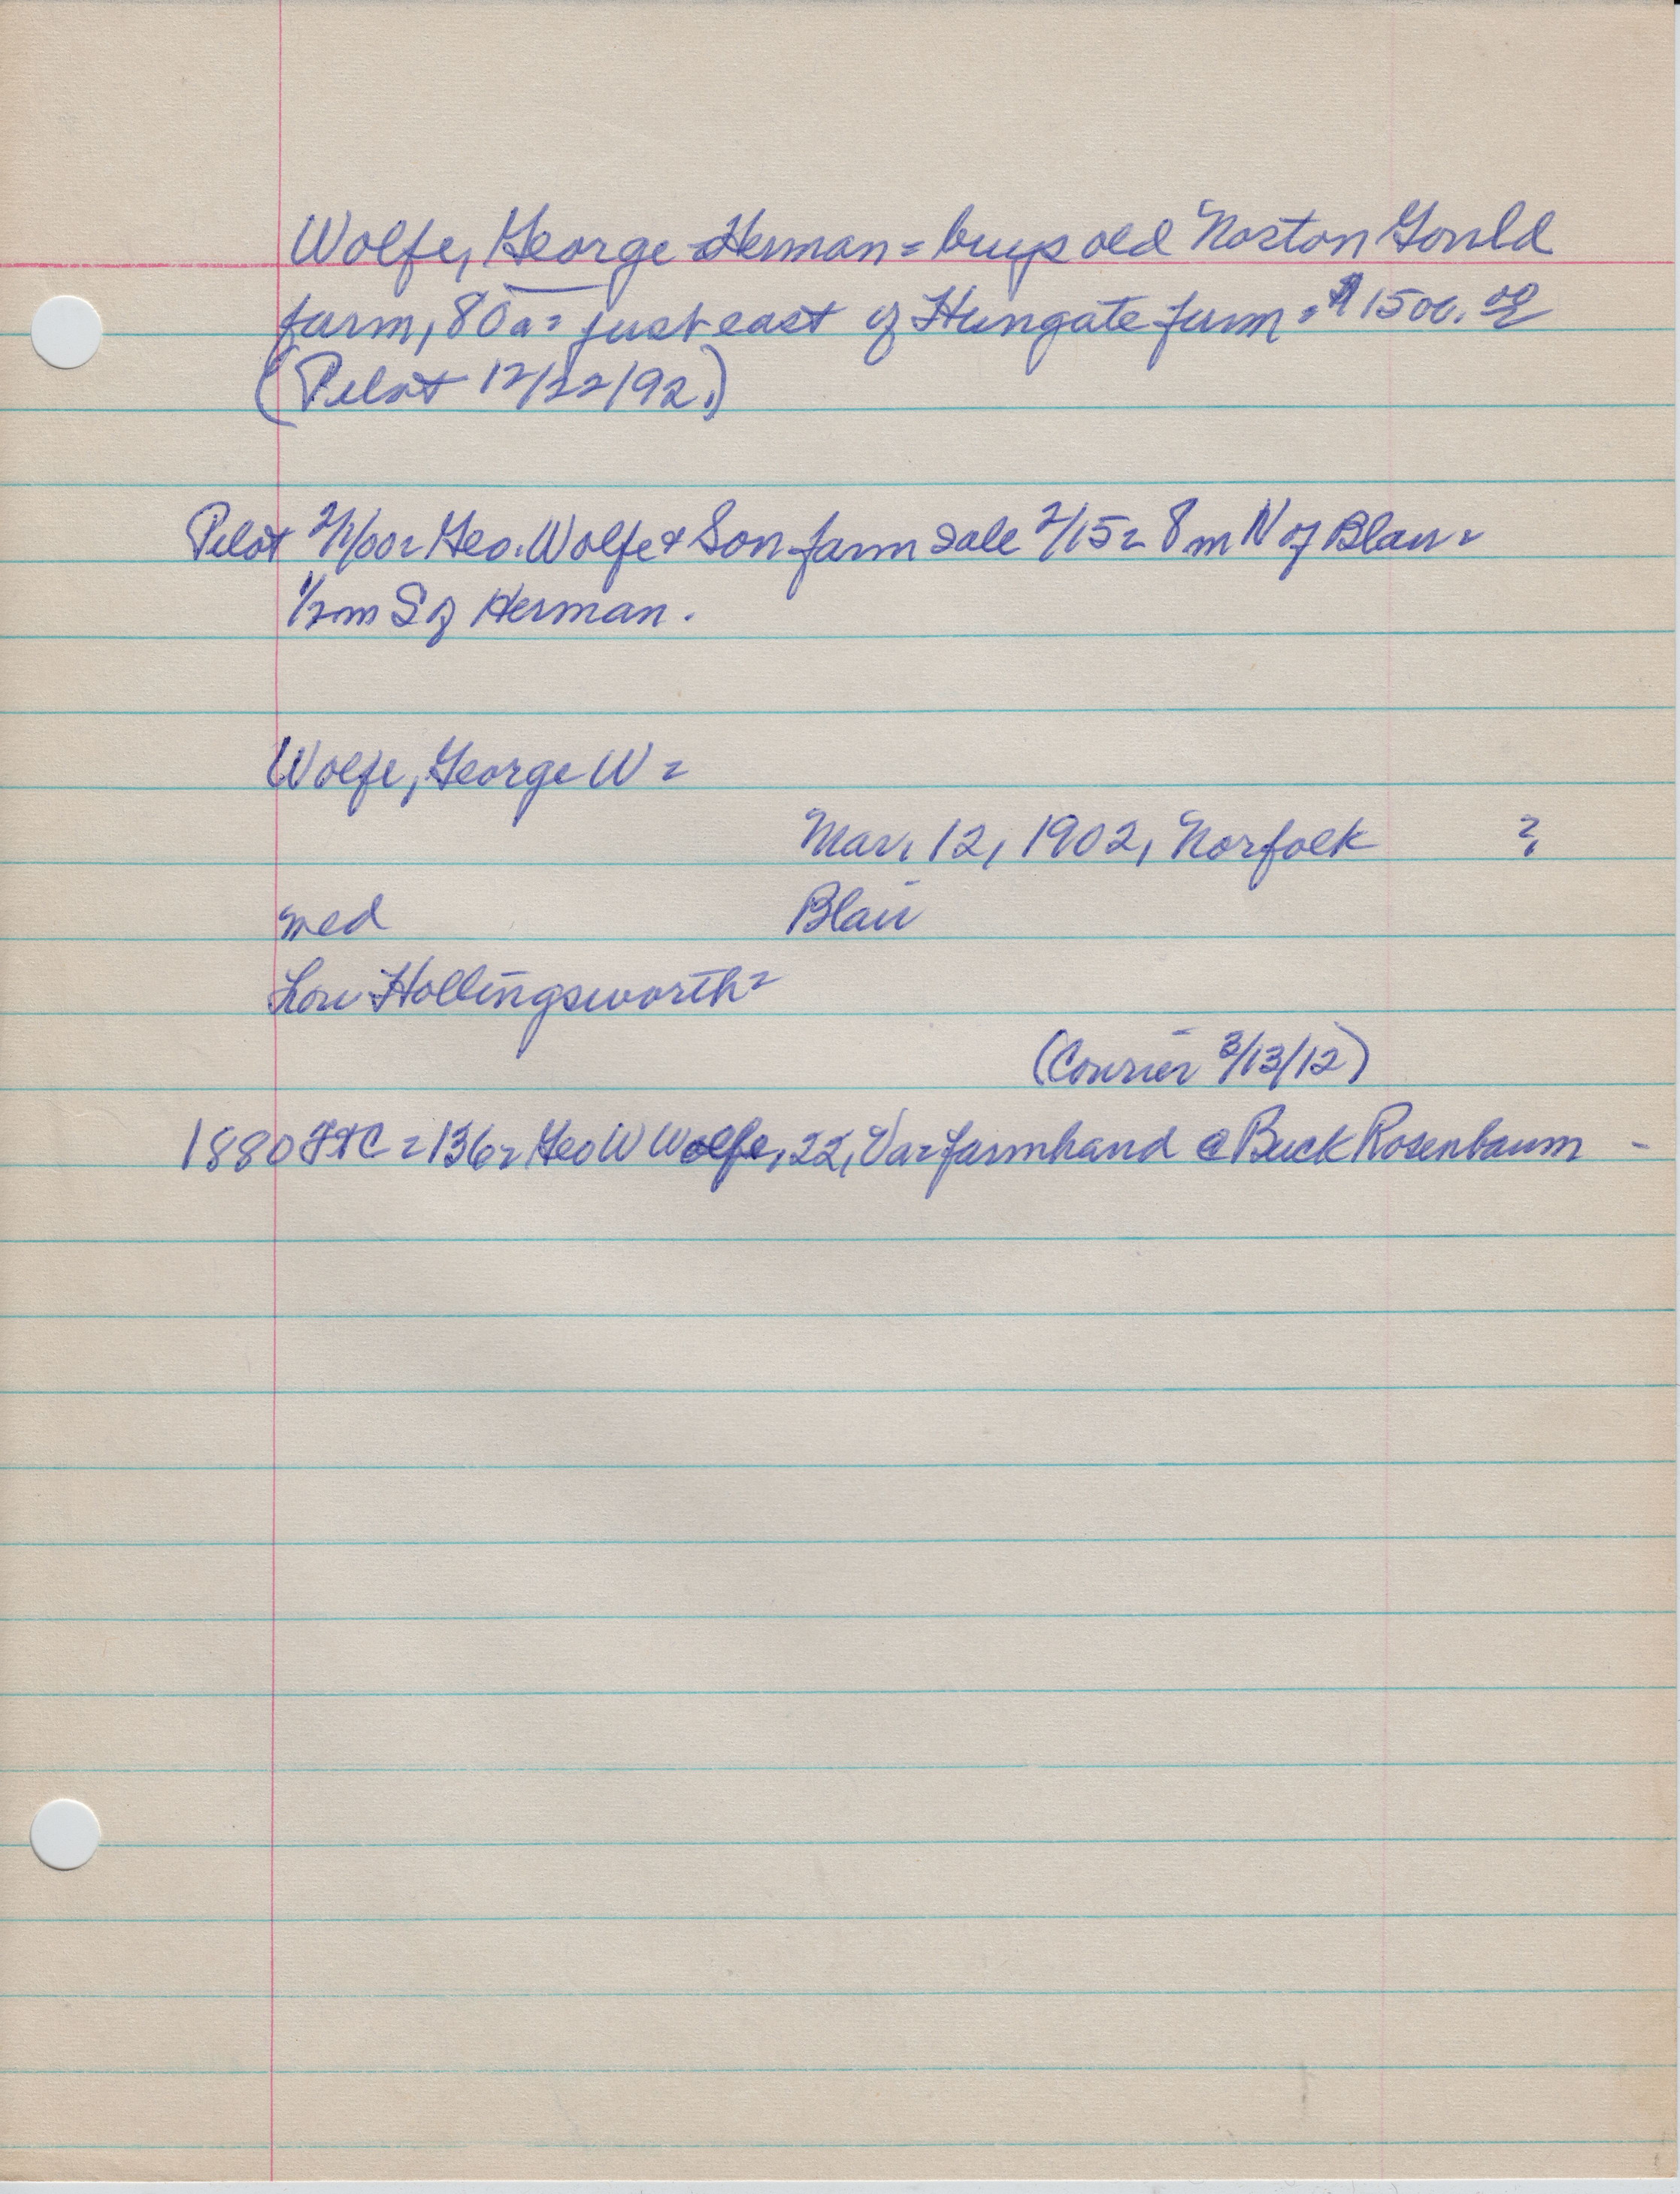 Wolfe, George Herman = buys old Norton Gould
farm, 80a = just east of Hungate farm = $1500.00
(Pilot 12/22/92.)
Pilot 2/1/00 = Geo. Wolfe & Son farm sale 2/15 = 8 m N of Blair =
1/2 m S of Herman.
Wolfe, George W =
Mar. 12, 1902, Norfolk ?
med Blair
Lou Hollingsworth =
(Courier 3/13/12)
1880 FTC = 136 = Geo W Wolfe, 22, Va = farmhand @ Buck Rosenbaum -